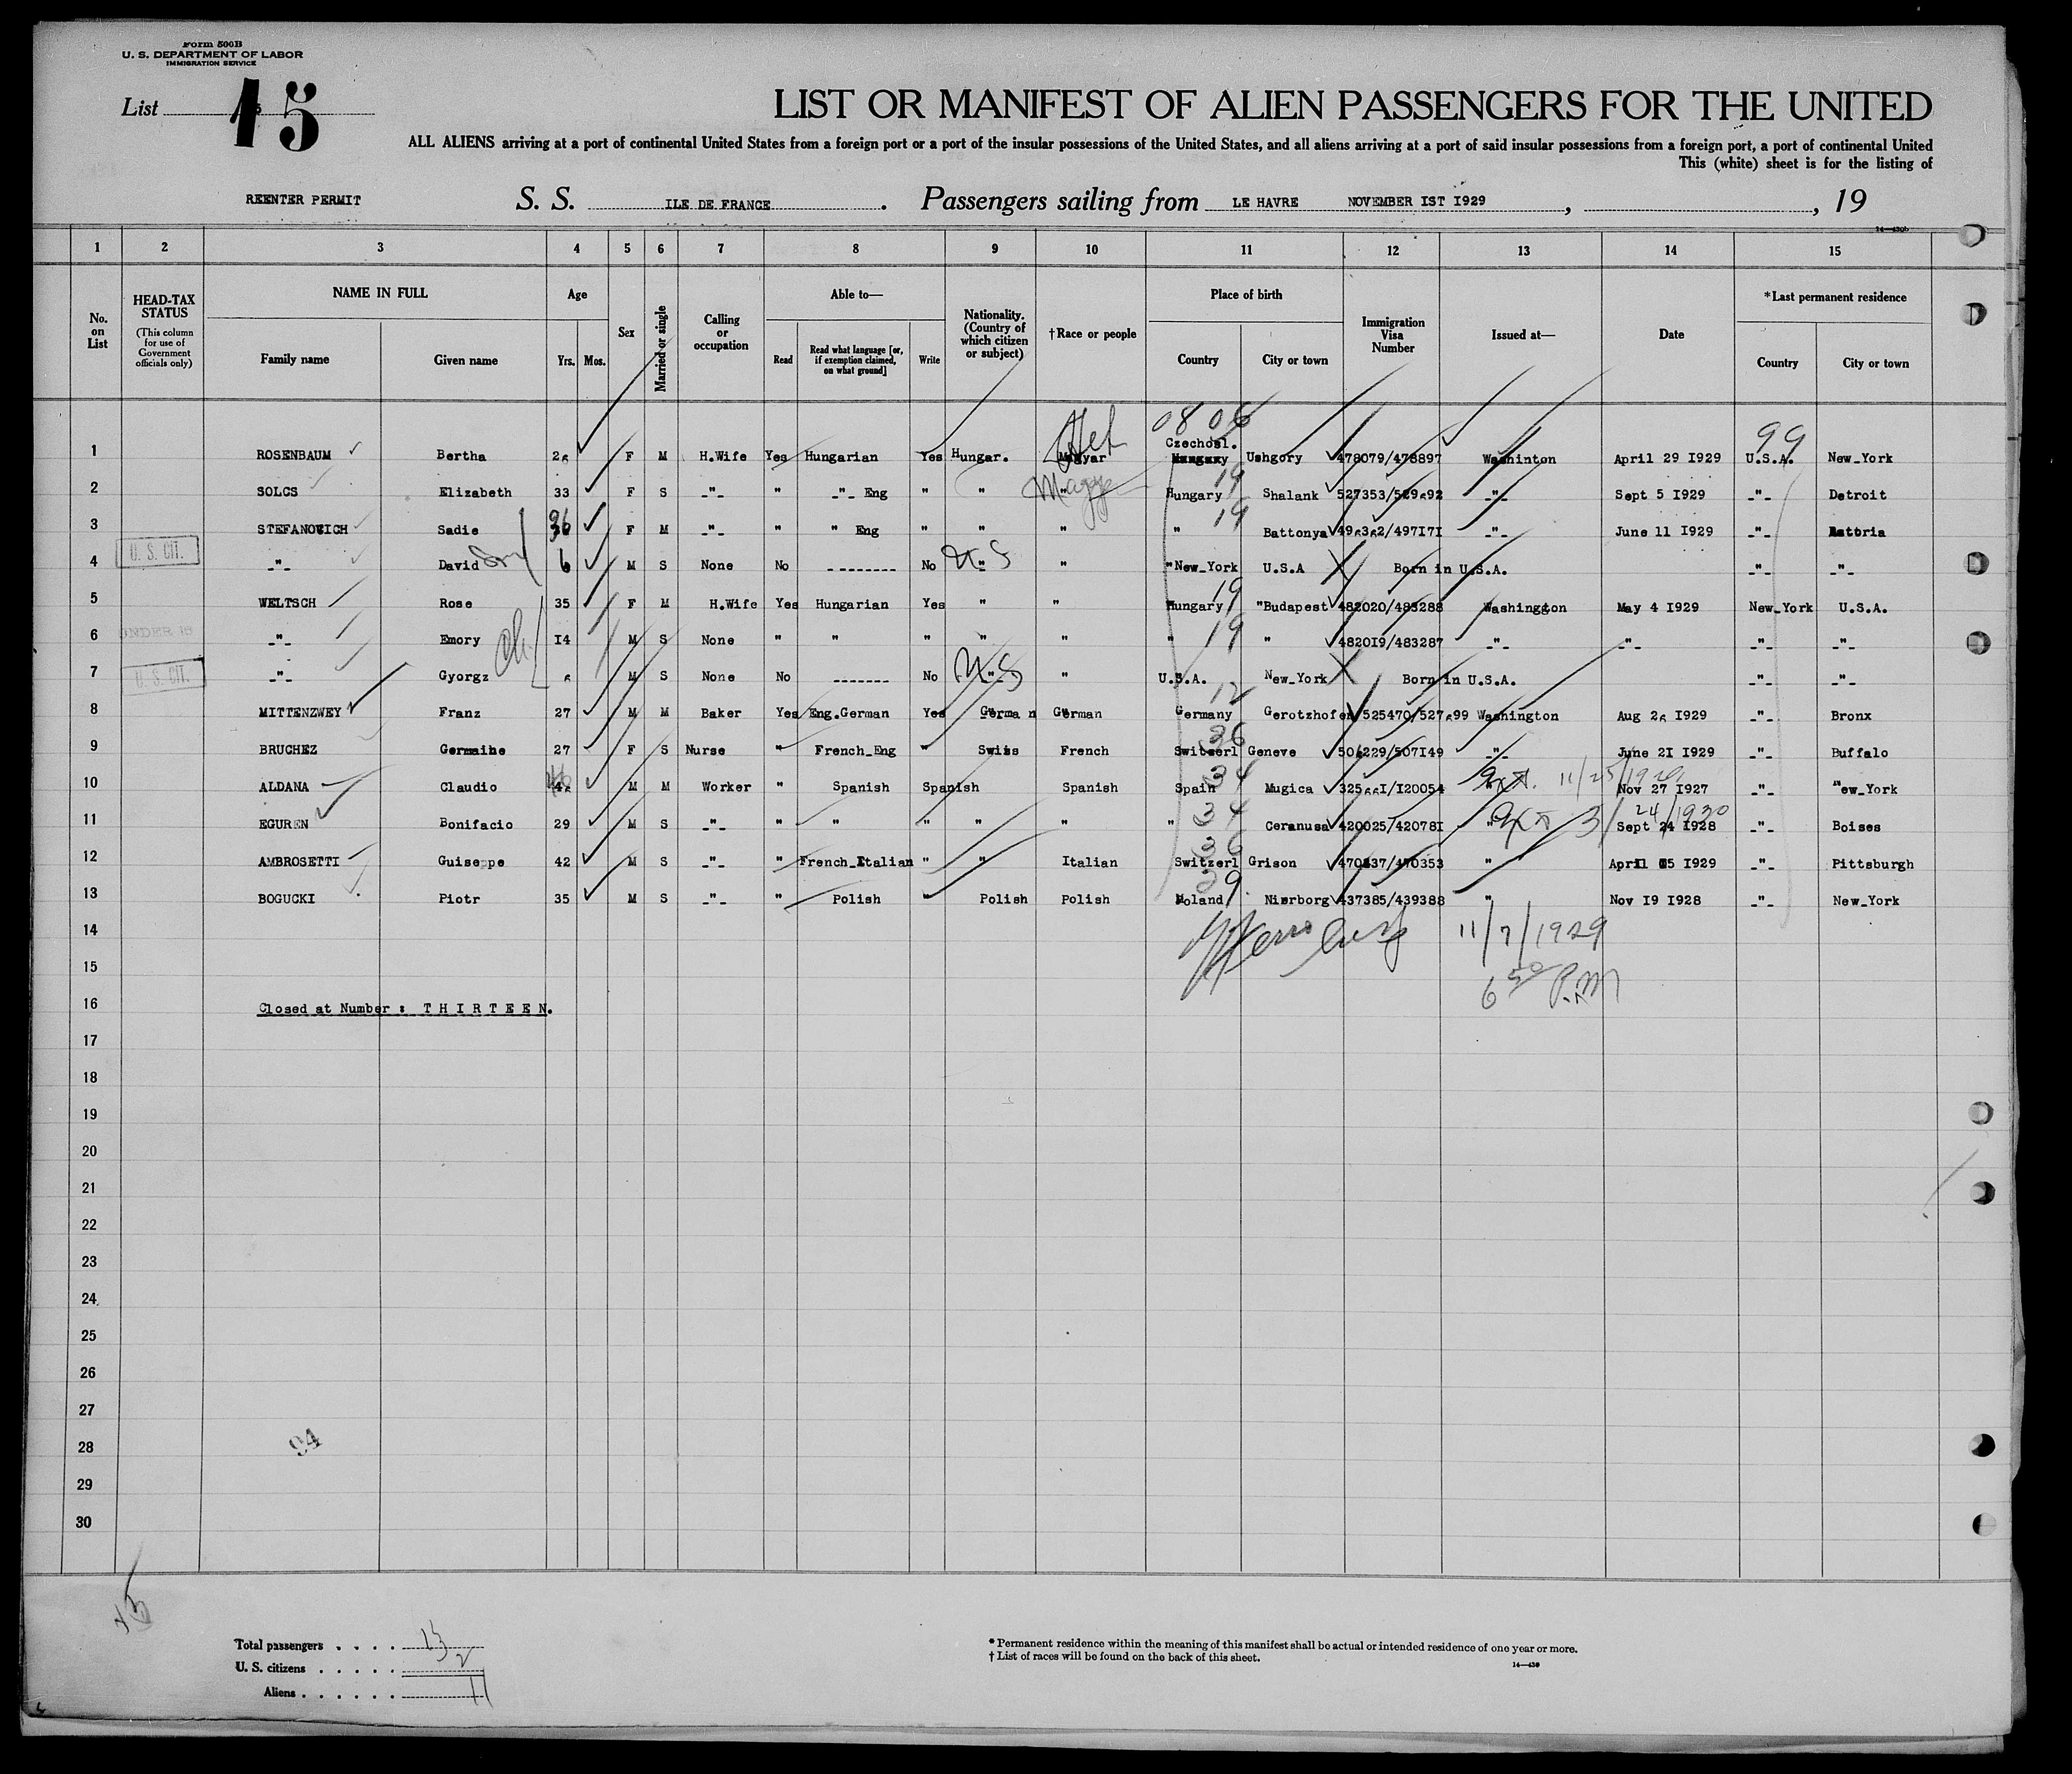 Form 500B
U. S. DEPARTMENT OF LABOR
IMMIGRATION SERVICE
List 15
LIST OR MANIFEST OF ALIEN PASSENGERS FOR THE UNITED
ALL ALIENS arriving at a port of continental United States from a foreign port or a port of the insular possessions of the United States, and all aliens arriving at a port of said insular possessions from a foreign port, a port of continental United
This (white) sheet is for the listing of
REENTER PERMIT S. S. ILE DE FRANCE . Passengers sailing from LE HAVRE NOVEMBER IST I929 , , 19
14—430b
1 2 3 4 5 6 7 8 9 10 11 12 13 14 15
No. on List
HEAD-TAX STATUS
(This column for use of Government officials only)
NAME IN FULL
Family name Given name
Age
Yrs. Mos.
Sex
Married or single
Calling or occupation
Able to—
Read Read what language [or, if exemption claimed, on what ground] Write
Nationality. (Country of which citizen or subject)
†Race or people
Place of birth
Country City or town
Immigration Visa Number
Issued at—
Date
*Last permanent residence
Country City or town
08 06 99
1 ROSENBAUM Bertha F M H.Wife Yes Hungarian Yes Hungar. Magyar Czechosl. Ushgory 478079/478897 Washinton April 29 I929 U.S.A. New_York
2 SOLCS Elizabeth 33 F S _"_ " _"_ Eng " " Hungary 19 Shalank _"_ Sept 5 I929 _"_ Detroit
3 STEFANOVICH Sadie F M _"_ " " Eng " " " " 19 Battonya _"_ June II I929 _"_
4 U. S. CIT. _"_ David 6 M S None No -------- No US " "New_York U.S.A Born in U.S.A. _"_ _"_
5 WELTSCH Rose 35 F M H.Wife Yes Hungarian Yes " " Hungary 19 "Budapest 482020/483288 Washington May 4 I929 New_York U.S.A.
6 UNDER 16 _"_ Emory I4 M S None " " " " " " 19 " 4820I9/483287 _"_ _"_ _"_ _"_
7 U. S. CIT. _"_ Gyorgz M S None No ------- No US " U.S.A. New_York Born in U.S.A. _"_ _"_
8 MITTENZWEY Franz 27 M M Baker Yes Eng.German Yes German German Germany 12 Gerotzhofen Washington _"_ Bronx
9 BRUCHEZ Germaine 27 F S Nurse " French_Eng " Swiss French Switzerl 36 Geneve _"_ June 2I I929 _"_ Buffalo
10 ALDANA Claudio M M Worker " Spanish Spanish Spanish Spain 34 Mugica Ext. 11/25/1929 Nov 27 I927 _"_ New_York
11 EGUREN Bonifacio 29 M S _"_ " " " " " " 34 Ceranusa 420025/42078I " Ext 3/24/1930 Sept 24 I928 _"_ Boises
12 AMBROSETTI Guiseppe 42 M S _"_ " French_Italian " " Italian Switzerl 36 Grison " _"_ Pittsburgh
13 BOGUCKI Piotr 35 M S _"_ " Polish " Polish Polish 29 437385/439388 " Nov I9 I928 _"_ New_York
14 11/7/1929
15 6 50 P.M
16 Closed at Number : T H I R T E E N.
17
18
19
20
21
22
23
24
25
26
27
28 94
29
30
Total passengers . . . . 13
U. S. citizens . . . . . 2
Aliens . . . . . . 11
* Permanent residence within the meaning of this manifest shall be actual or intended residence of one year or more.
† List of races will be found on the back of this sheet.
14—430